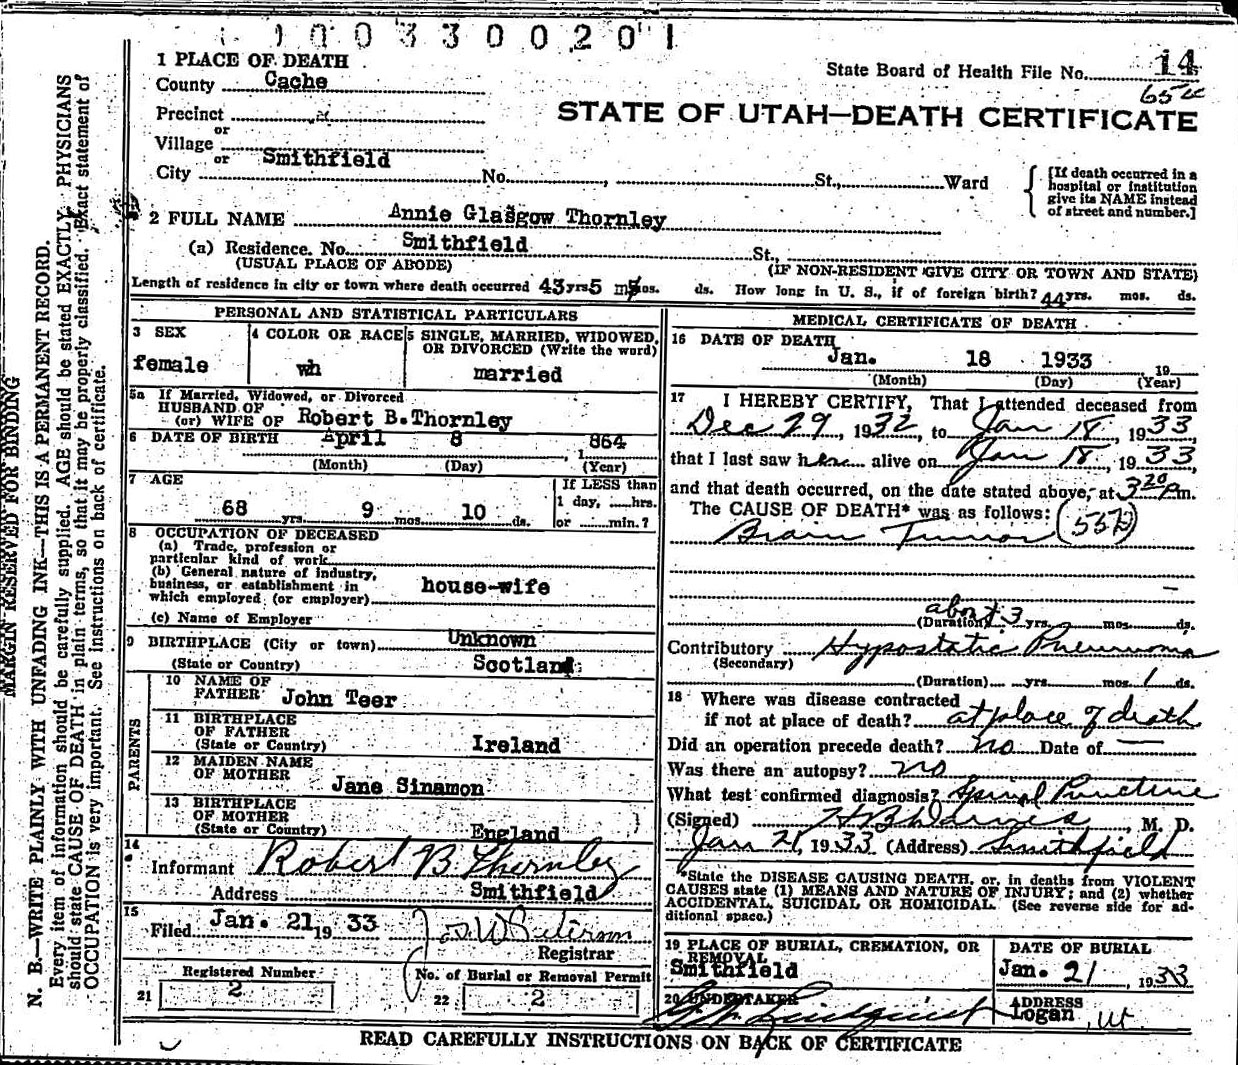 1003300201
14
State Board of Health File No.
1 PLACE OF DEATH
County Cache
STATE OF UTAH—DEATH CERTIFICATE
Precinct
or
Village
or Smithfield
City No. , St., Ward
[If death occurred in a
hospital or institution
give its NAME instead
of street and number.]
2 FULL NAME Annie Glasgow Thornley
(a) Residence. No. Smithfield St.,
(USUAL PLACE OF ABODE) (IF NON-RESIDENT GIVE CITY OR TOWN AND STATE)
Length of residence in city or town where death occurred 43 yrs 5 mos. ds. How long in U. S., if of foreign birth? 44 yrs. mos. ds.
PERSONAL AND STATISTICAL PARTICULARS
3 SEX
female
4 COLOR OR RACE
wh
5 SINGLE, MARRIED, WIDOWED,
OR DIVORCED (Write the word)
married
5a If Married, Widowed, or Divorced
HUSBAND OF
(or) WIFE OF Robert B.Thornley
6 DATE OF BIRTH April 8 , 1864
(Month) (Day) (Year)
7 AGE
68 yrs. 9 mos. 10 ds.
If LESS than
1 day, ......hrs.
or ......min.?
8 OCCUPATION OF DECEASED
(a) Trade, profession or
particular kind of work
(b) General nature of industry,
business, or establishment in
which employed (or employer)
house-wife
(c) Name of Employer
9 BIRTHPLACE (City or town) Unknown
(State or Country) Scotland
PARENTS
10 NAME OF
FATHER John Teer
11 BIRTHPLACE
OF FATHER
(State or Country) Ireland
12 MAIDEN NAME
OF MOTHER Jane Sinamon
13 BIRTHPLACE
OF MOTHER
(State or Country) England
14
Informant Robert B Thornley
Address Smithfield
15
Filed Jan. 21 19 33 Jos. W Peterson
Registrar
Registered Number
21 2
No. of Burial or Removal Permit
22 2
MEDICAL CERTIFICATE OF DEATH
16 DATE OF DEATH
Jan. 18 1933 19
(Month) (Day) (Year)
17 I HEREBY CERTIFY, That I attended deceased from
Dec 29, 1932, to Jan 18, 1933
that I last saw her alive on Jan 18, 1933
and that death occurred, on the date stated above, at 3 20 Pm.
The CAUSE OF DEATH* was as follows:
Brain Tumor
about 3
(Duration) yrs. mos. ds.
Contributory Hypostatic Pneumonia
(Secondary)
(Duration) yrs. mos. 1 ds.
18 Where was disease contracted
if not at place of death? at place of death
Did an operation precede death? no Date of —
Was there an autopsy? no
What test confirmed diagnosis? Spinal Puncture
(Signed) , M. D.
Jan 21, 1933 (Address) Smithfield
*State the DISEASE CAUSING DEATH, or, in deaths from VIOLENT
CAUSES state (1) MEANS AND NATURE OF INJURY; and (2) whether
ACCIDENTAL, SUICIDAL OR HOMICIDAL. (See reverse side for ad-
ditional space.)
19 PLACE OF BURIAL, CREMATION, OR
REMOVAL
Smithfield
DATE OF BURIAL
Jan. 21, 1933
20 UNDERTAKER
Lindquist
ADDRESS
Logan, Ut.
READ CAREFULLY INSTRUCTIONS ON BACK OF CERTIFICATE
MARGIN RESERVED FOR BINDING
N. B.—WRITE PLAINLY WITH UNFADING INK—THIS IS A PERMANENT RECORD.
Every item of information should be carefully supplied. AGE should be stated EXACTLY. PHYSICIANS
should state CAUSE OF DEATH in plain terms, so that it may be properly classified. Exact statement of
OCCUPATION is very important. See instructions on back of certificate.